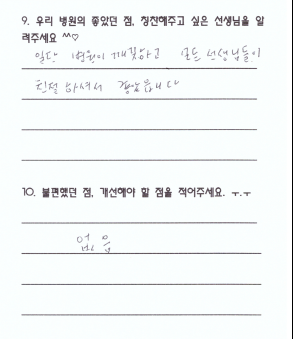 9. 우리 병원의 좋았던 점, 칭찬해주고 싶은 선생님을 알
려주세요 ^^♡
일단 병원이 깨끗하고 모든 선생님들이
친절하셔서
10. 불편했던 점, 개선해야 할 점을 적어주세요. ㅜ.ㅜ
없음